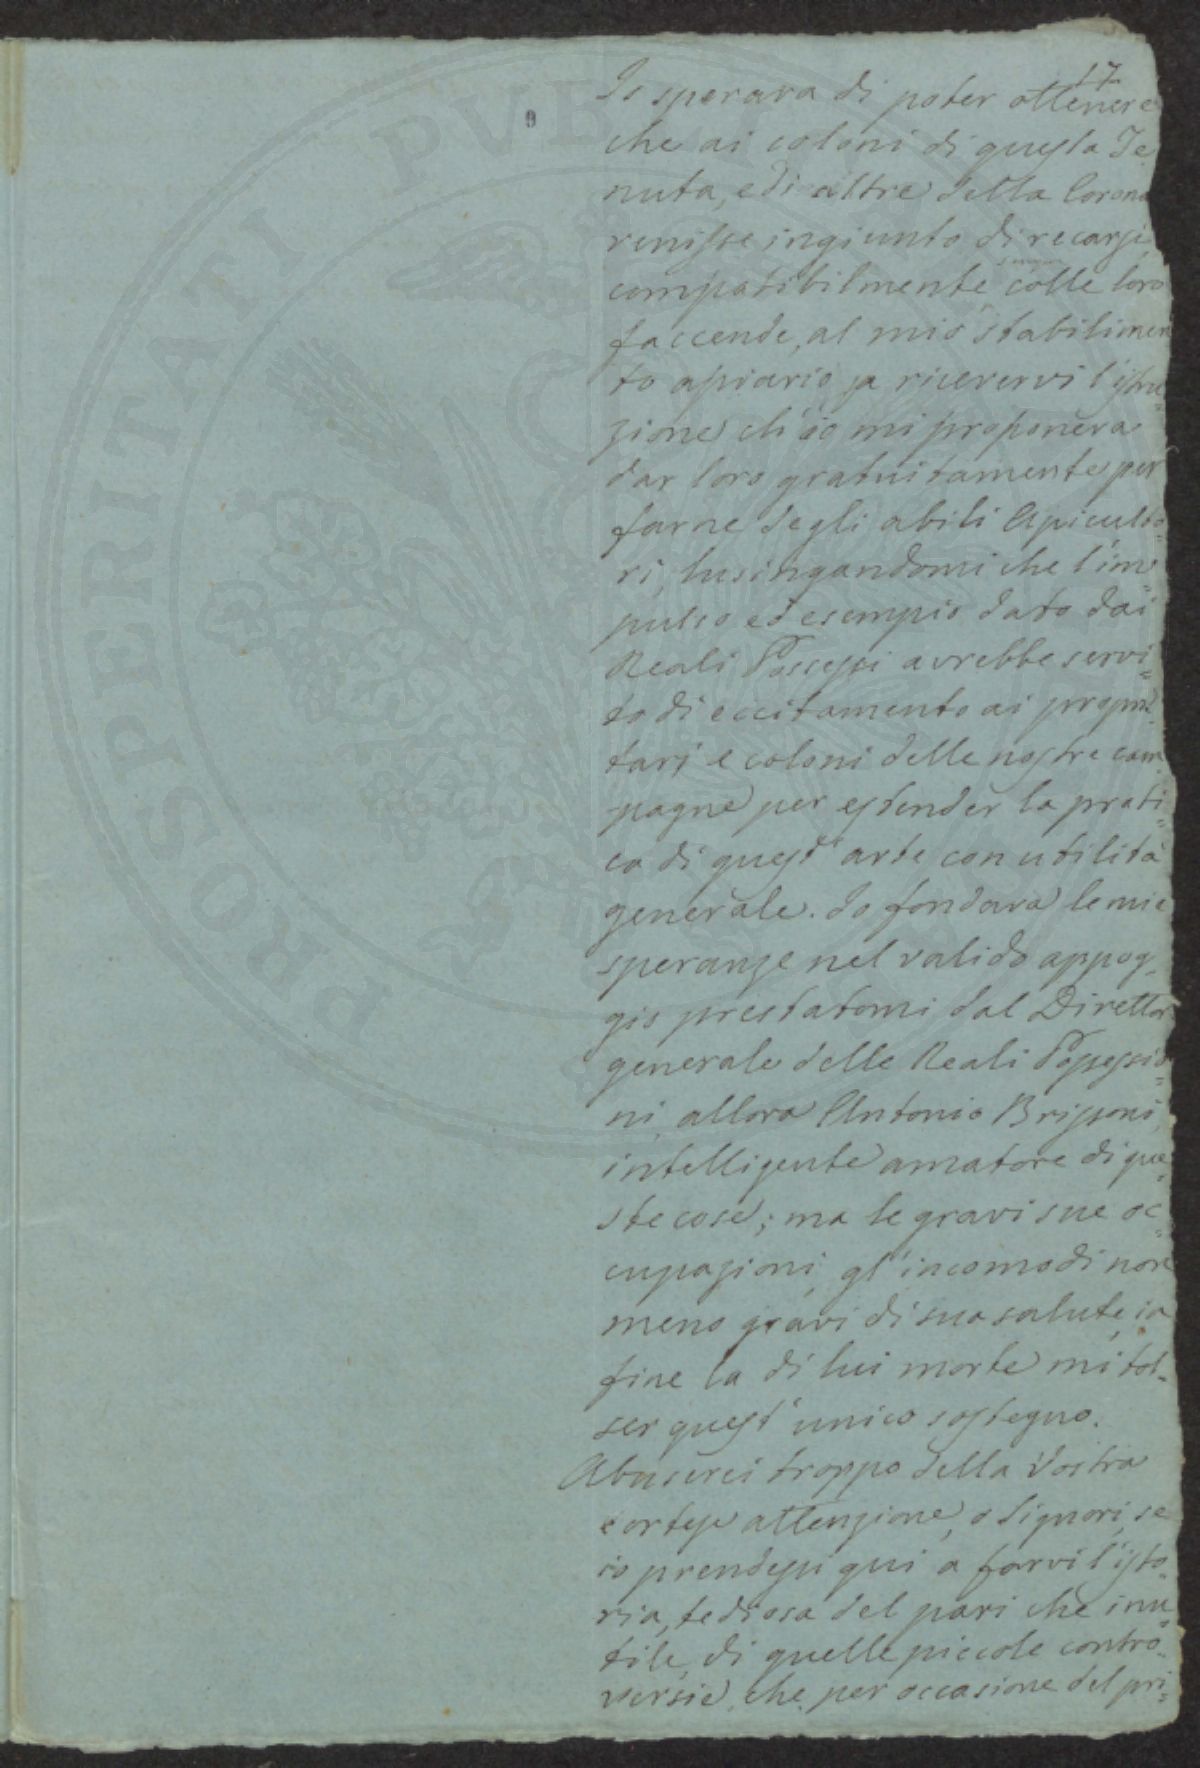 17
Io sperava di poter ottenere
che ai coloni di questa Te
nuta, e di altre della Corona
venisse ingiunto di recarsi
compatibilmente colle loro
faccende, al mio stabilimen
to apiario, a ricevervi l'istru=
zione ch'io mi proponeva
dar loro gratuitamente per
farne degli abili Apiculto=
ri, lusingandomi che l'im=
pulso ed esempio dato dai
Reali Possessi avrebbe servi=
to di eccitamento ai proprie=
tarj e coloni delle nostre cam
pagne per estender la prati=
ca di quest'arte con utilità
generale. Io fondava le mie
speranze nel valido appog=
gio prestatomi dal Direttor
generale delle Reali Possessio=
ni, allora Antonio Brissoni,
intelligente amatore di que=
ste cose; ma le gravi sue oc=
cupazioni, gl'incomodi non
meno gravi di sua salute, in
fine la di lui morte mi tol=
ser quest'unico sostegno.
Abuserei troppo della Vostra
cortese attenzione, o Signori, se
io prendessi qui a farvi l'isto=
ria, tediosa del pari che inu=
tile, di quelle piccole contro=
versie, che per occasione del pri=
PROSPERITATI PVBLI